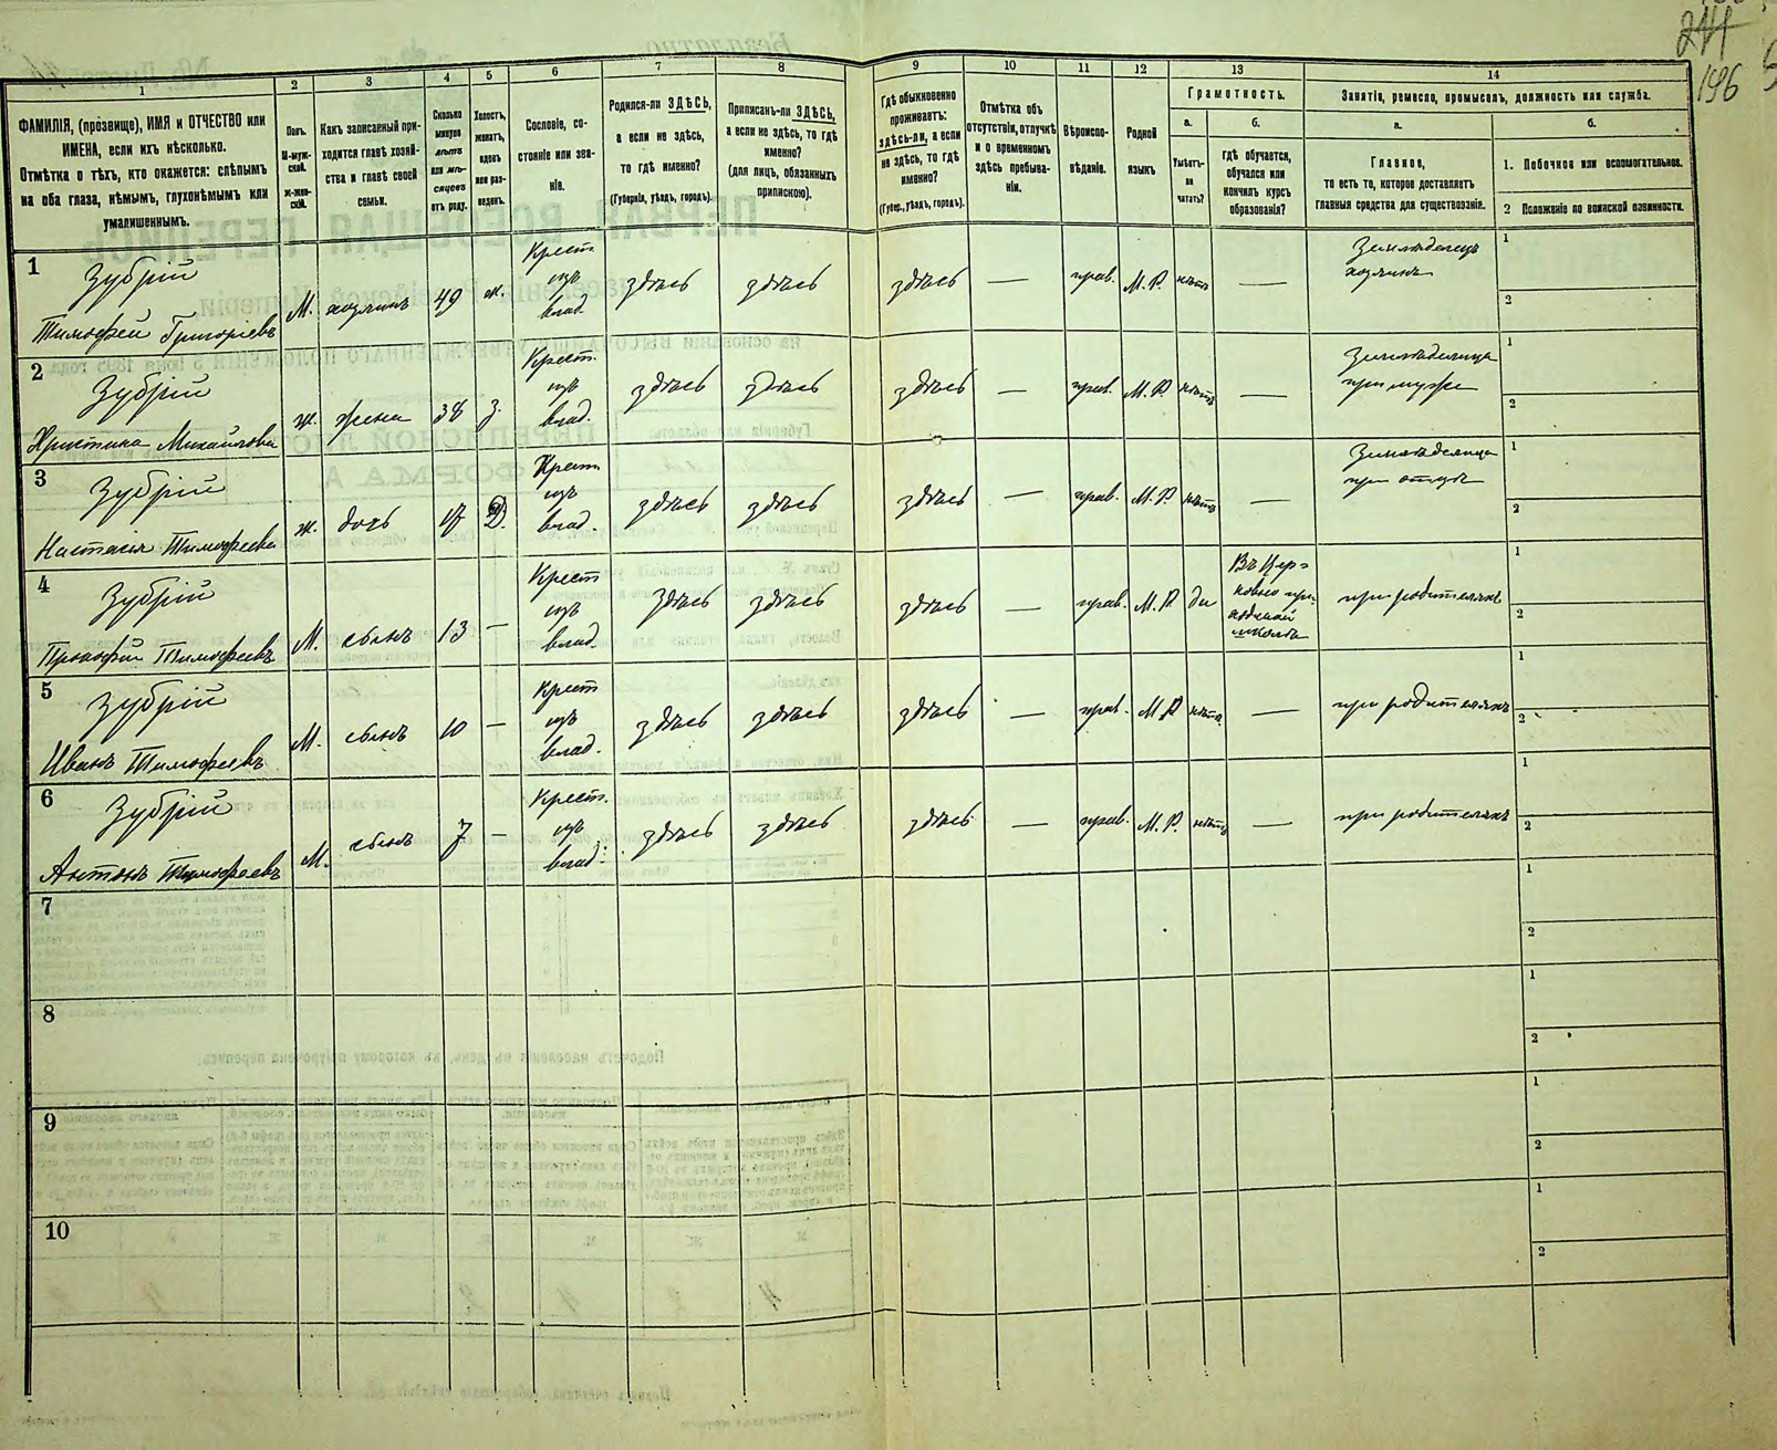 244
196
1 2 3 4 5 6 7 8 9 10 11 12 13 14
ФАМИЛІЯ, (прозвище), ИМЯ и ОТЧЕСТВО или ИМЕНА, если ихъ нѣсколько.
Отмѣтка о тѣхъ, кто окажется: слѣпымъ на оба глаза, нѣмымъ, глухонѣмымъ или умалишеннымъ.
Полъ.
М-мужской.
ж-женскій.
Какъ записанный приходится главѣ хозяйства и главѣ своей семьи.
Сколько минуло лѣтъ или мѣсяцевъ отъ роду.
Холостъ, женатъ, вдовъ или разведенъ.
Сословіе, состояніе или званіе.
Родился-ли ЗДѢСЬ, а если не здѣсь, то гдѣ именно?
(Губернія, уѣздъ, городъ).
Приписанъ-ли ЗДѢСЬ, а если не здѣсь, то гдѣ именно?
(для лицъ, обязанныхъ припискою).
Гдѣ обыкновенно проживаетъ: здѣсь-ли, а если не здѣсь, то гдѣ именно?
(Губер., уѣздъ, городъ).
Отмѣтка объ отсутствіи, отлучкѣ и о временномъ здѣсь пребываніи.
Вѣроисповѣданіе.
Родной языкъ.
Грамотность.
а.
Умѣетъ-ли читать?
б.
гдѣ обучается, обучался или кончилъ курсъ образованія?
Занятіе, ремесло, промыселъ, должность или служба.
а.
Главное,
то есть то, которое доставляетъ главныя средства для существованія.
б.
1. Побочное или вспомогательное.
2 Положеніе по воинской повинности.
1 Зубрій Тимофей Григоріевъ М. хозяинъ 49 ж. Крест. изъ влад. здѣсь здѣсь здѣсь — прав. М. Р. нѣтъ — Земледелецъ хозяинъ 1 2
2 Зубрій Христина Михайлова ж. жена 38 з. Крест. изъ влад. здѣсь здѣсь здѣсь — прав. М. Р. нѣтъ — Земледелица при мужѣ 1 2
3 Зубрій Настасія Тимофеева ж. дочь 17 Д. Крест. изъ влад. здѣсь здѣсь здѣсь — прав. М. Р. нѣтъ — Земледелица при отцѣ 1 2
4 Зубрій Прокофій Тимофеевъ М. сынъ 13 — Крест изъ влад. здѣсь здѣсь здѣсь — прав. М. Р. да Въ Церковно приходской школѣ при родителяхъ 1 2
5 Зубрій Иванъ Тимофеевъ М. сынъ 10 — Крест изъ влад. здѣсь здѣсь здѣсь — прав. М. Р нѣтъ — при родителяхъ 1 2
6 Зубрій Антонъ Тимофеевъ М. сынъ 7 — Крест. изъ влад. здѣсь здѣсь здѣсь — прав. М. Р. нѣтъ — при родителяхъ 1 2
7 1 2
8 1 2
9 1 2
10 1 2